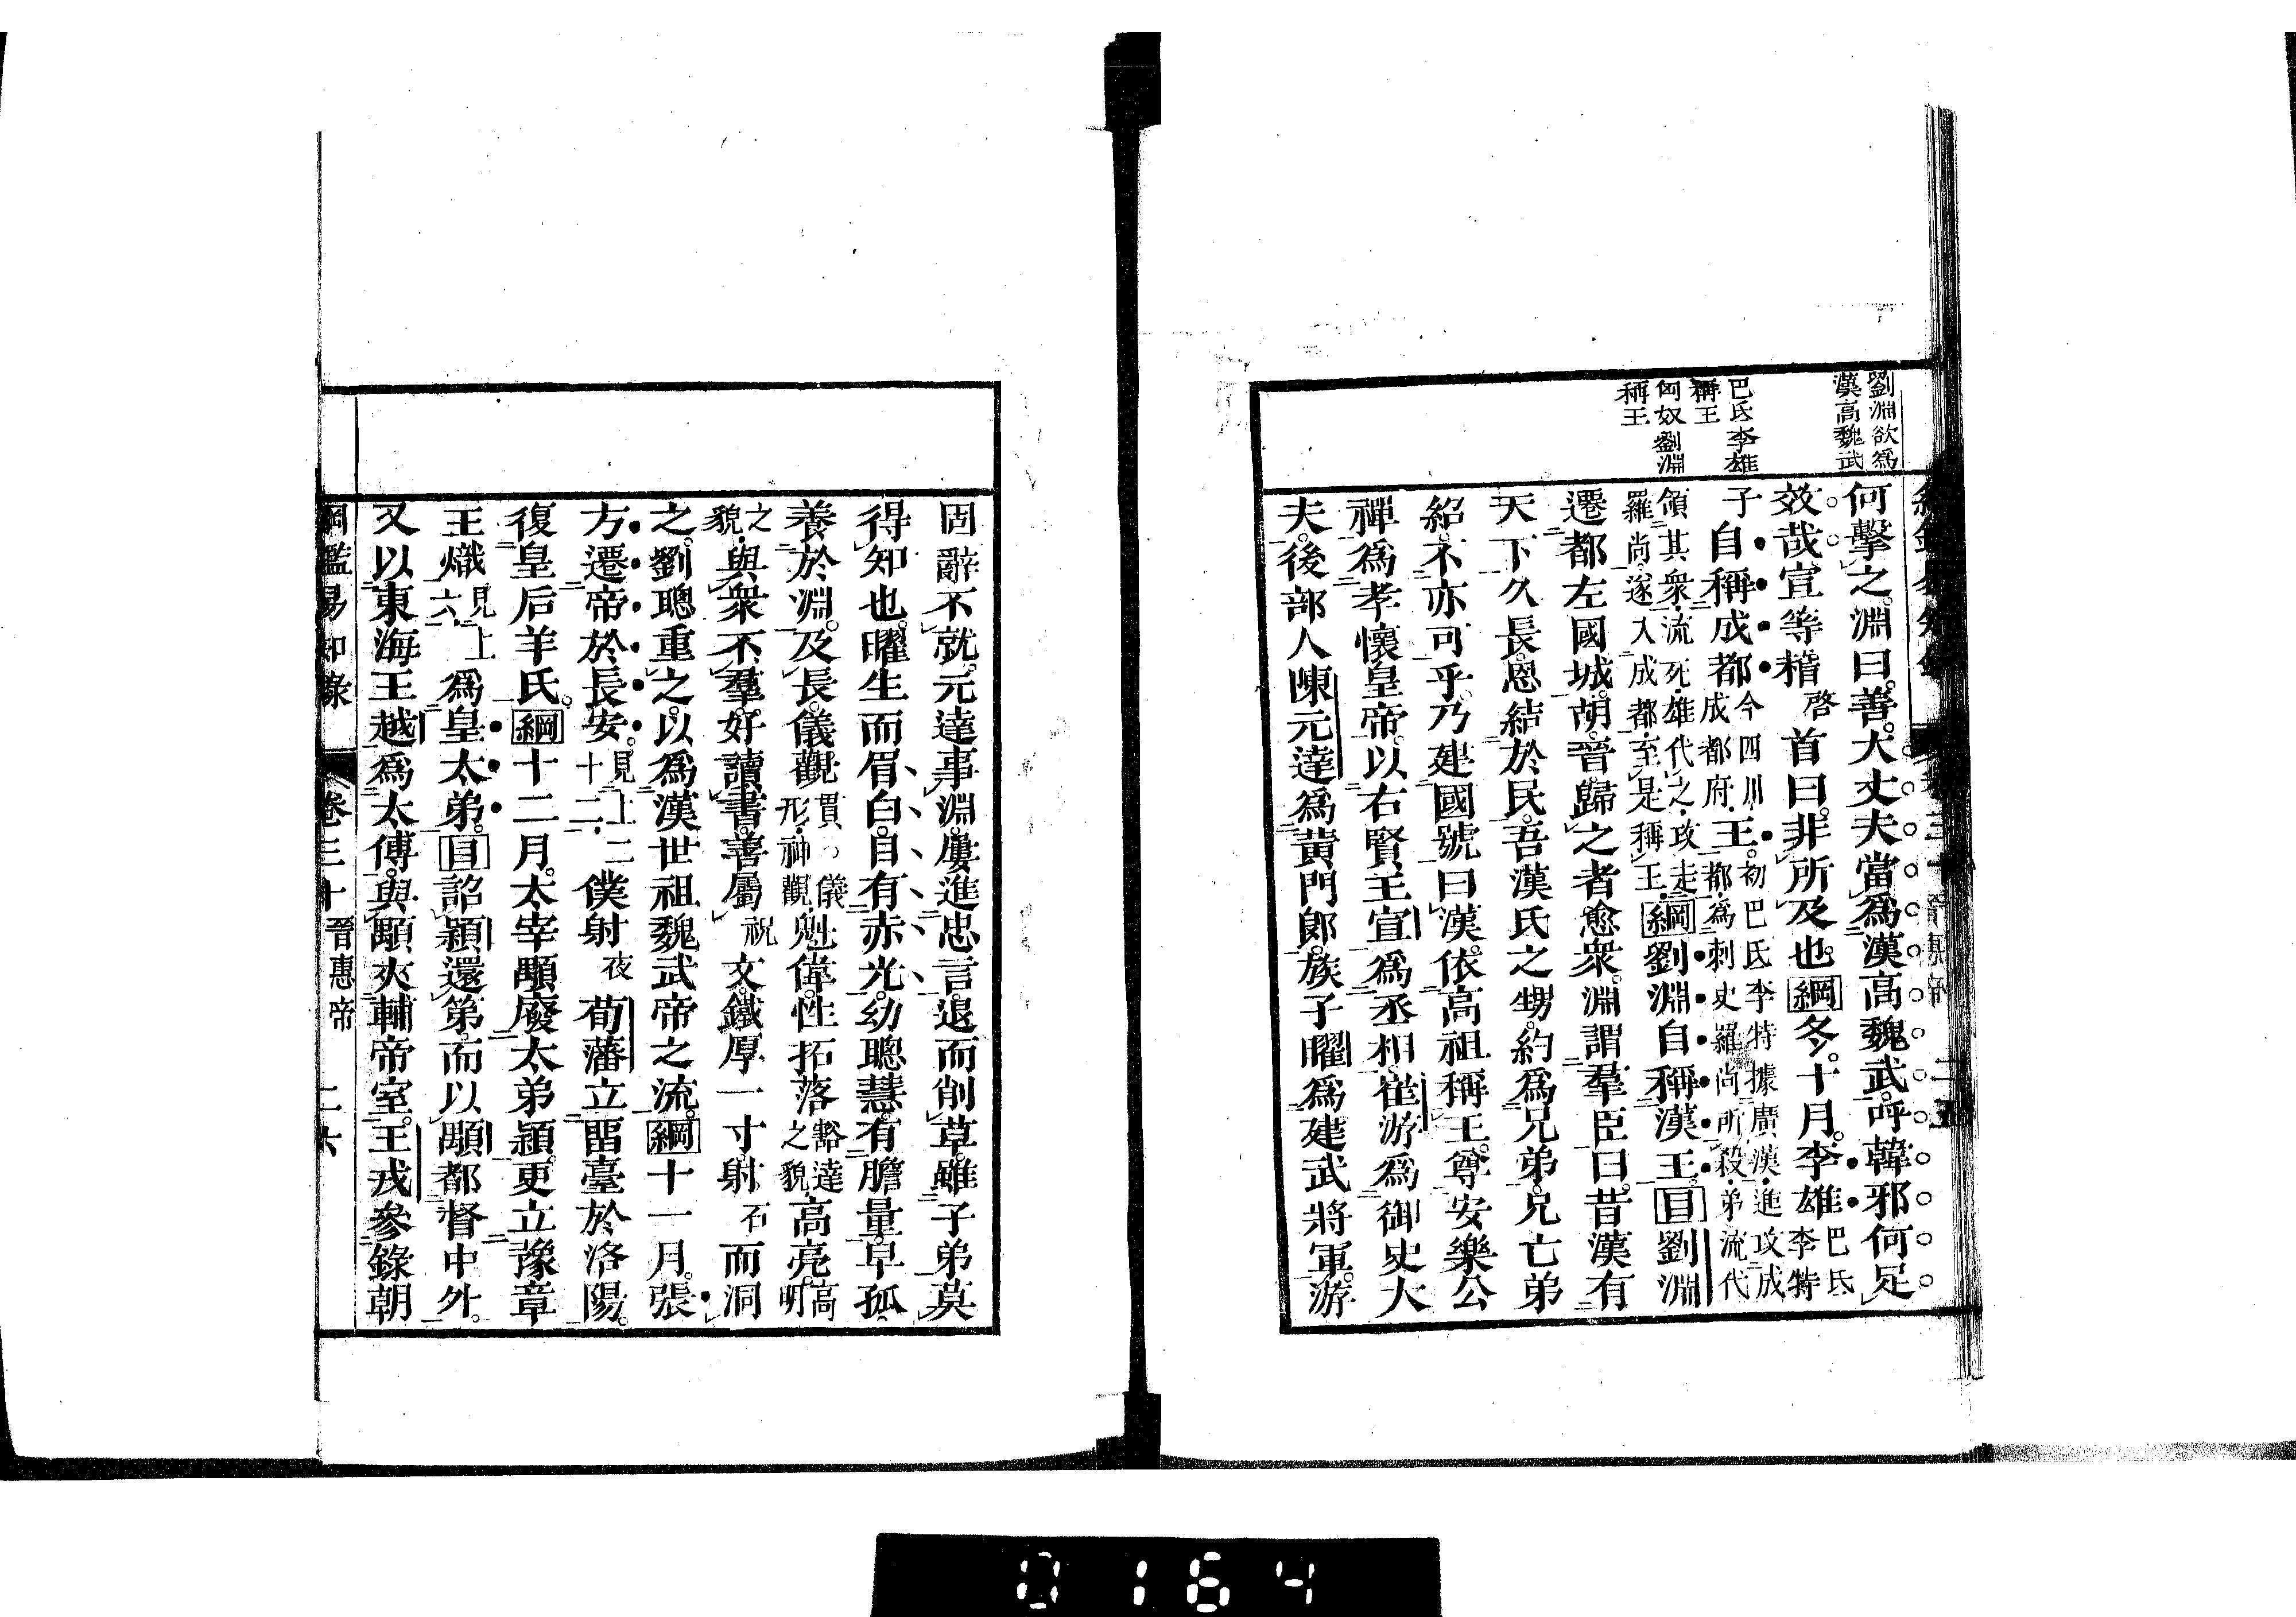 劉淵欲爲
漢高魏武
巴氐李雄
稱王
匈奴劉淵
稱王
何擊之淵曰善大丈夫當爲漢高魏武呼韓邪何足
效哉宣等稽啓首曰非所及也綱冬十月李雄巴氐李特
子自稱成都今四川成都府王初巴氐李特據廣漢進攻成都爲刺史羅尚所殺弟流代
領其衆流死雄代之攻走羅尚遂入成都至是稱王綱劉淵自稱漢王目劉淵
遷都左國城胡晉歸之者愈衆淵謂羣臣曰昔漢有
天下久長恩結於民吾漢氏之甥約爲兄弟兄亡弟
紹不亦可乎乃建國號曰漢依高祖稱王尊安樂公
禪爲孝懷皇帝以右賢王宣爲丞相崔游爲御史大
夫後部人陳元達爲黃門郎族子曜爲建武將軍游
固辭不就元達事淵屢進忠言退而削草雖子弟莫
得知也曜生而眉白目有赤光幼聰慧有膽量早孤
養於淵及長儀觀貫儀形神觀魁偉性拓落豁達之貌高亮高明
之貌與衆不羣好讀書善屬祝文鐵厚一寸射石而洞
之劉聰重之以爲漢世祖魏武帝之流綱十一月張
方遷帝於長安見上二十二僕射夜荀藩立畱臺於洛陽
復皇后羊氏綱十二月太宰顒廢太弟穎更立豫章
王熾見上六爲皇太弟目詔穎還第而以顒都督中外
又以東海王越爲太傅與顒夾輔帝室王戎參錄朝
綱鑑易知錄 卷三十 晉惠帝 二六
0164